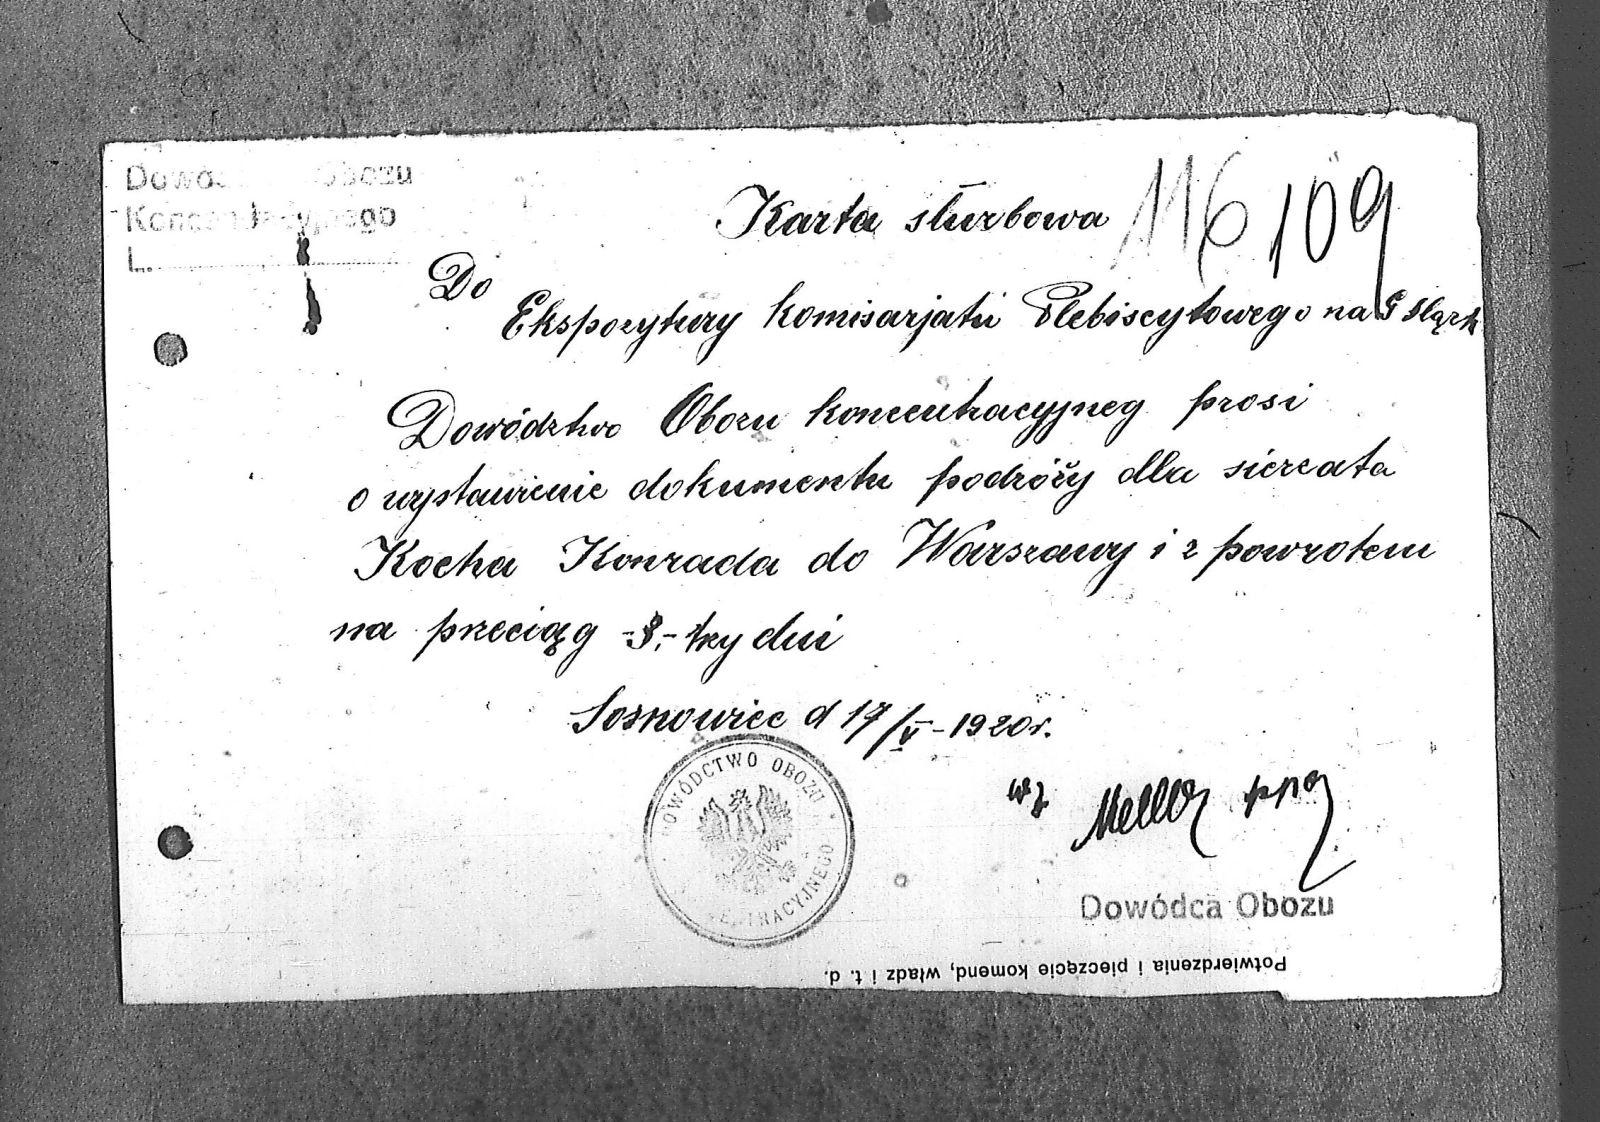 Obozu
L.
Karta służbowa 116 109
Do
Ekspozytury komisarjatu Plebiscytowego na G Śląsk
Dowództwo Obozu koncentracyjneg prosi
o wystawienie dokumentu podróży dla sierzata
Kocha Konrada do Warszawy i z powrotem
na przeciąg -3,- trzy dni
Sosnowiec d 17/V-1920r.
DOWÓDCTWO OBOZU
wz
ppor
Dowódca Obozu
Potwierdzenia i pieczęcie komend, władz i t. d.